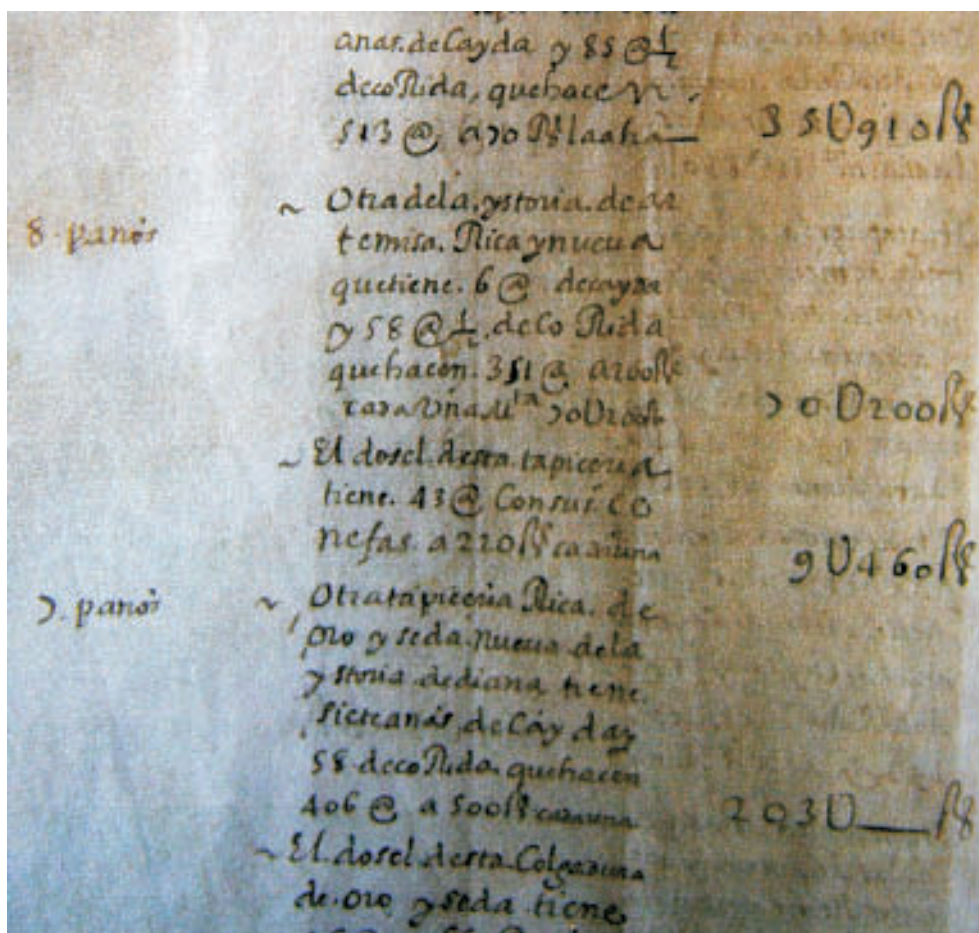 anas. de Cayda y 85 @ ½
de co Rida, que hace n
513 @ a 70 Rs la ana — 35U910 Rs
8. panos ~ Otra de la. ystoria. de ar
temisa. Rica y nueua
que tiene. 6 @ de cayda
y 58 @ ½. de Co Rida
que hacen. 351 @ a 200 Rs
cada Una 70U200 Rs 70U200 Rs
~ El dosel. desta. tapiceria
tiene. 43 @ Con sus. Co
nefas. a 220 Rs cada una 9U460 Rs
7. panos ~ Otra tapiceria Rica. de
oro y seda. nueua de la
ystoria de diana tiene
siete anas de Cayda y
58 de co Rida. que hacen
406 @ a 500 Rs cada una 203U__ Rs
~ El dosel desta Colgadura
de oro y seda tiene